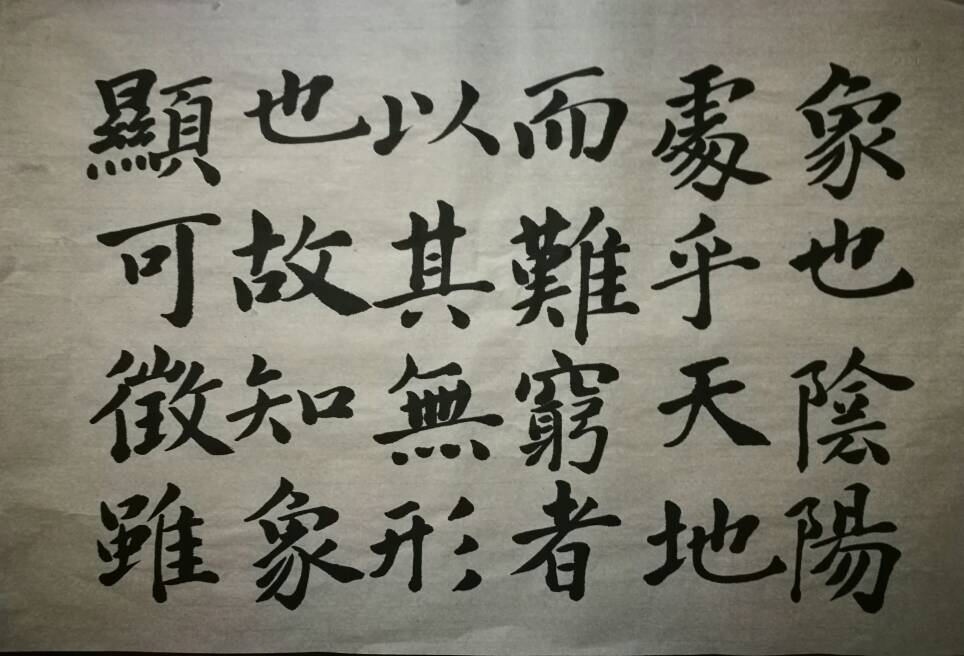 象也陰陽
處乎天地
而難窮者
以其無形
也故知象
顯可徵雖